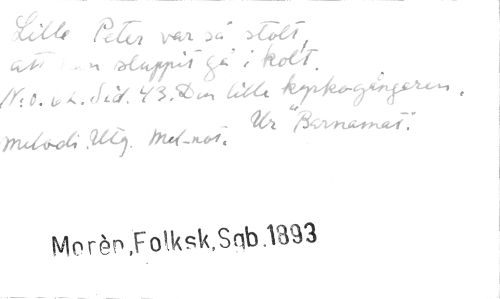 Lille Peter var så stolt,
att han sluppit gå i kolt.
N:o. 62. Sid. 43. Den lille kyrkogångaren.
Ur "Barnamat".
Melodi. Utg. Mel-not.
Morèn,Folksk,Sgb.1893